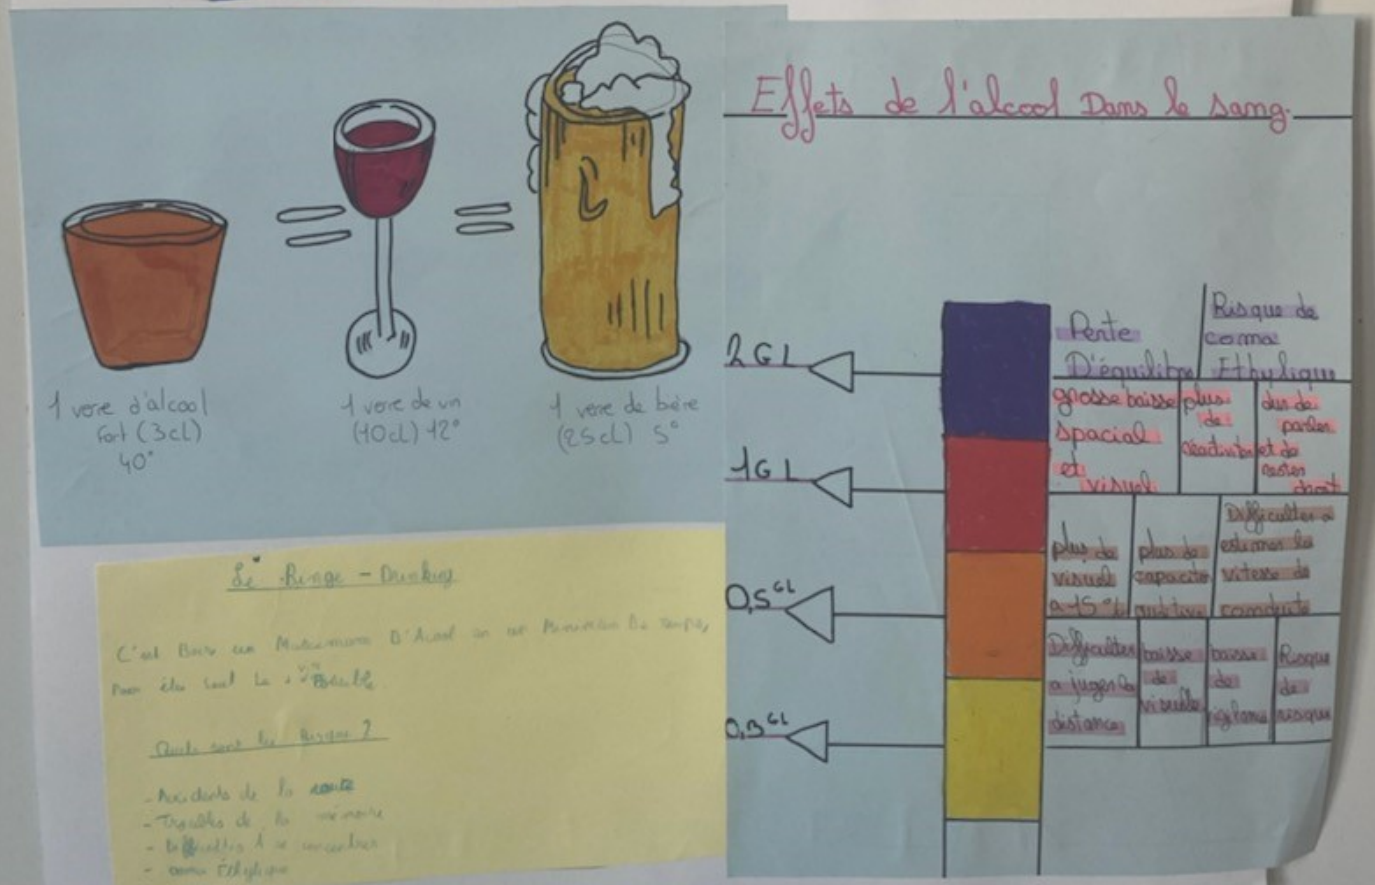 1 verre d'alcool
fort (3cl)
40°
1 verre de vin
(10cl) 12°
1 verre de bière
(25cl) 5°
Le Binge-Drinking
C'est Boire un Maximum D'Alcool en un Minimum De temps,
Pour être saoul le + vite Possible.
Quels sont les Risque ?
- Accidents de la route
- Troubles de la mémoire
- à se concentrer
- coma Ethylique
Effets de l'alcool Dans le sang.
2 GL
Perte
D'équilibre
Risque de
coma
Ethylique
1 GL
grosse baisse
spacial
et
visuel
plus
de
réactivité
dur de
parler
et de
rester
droit
0,5 GL
plus de
visuel
a 15%
plus de
capacité
auditive
Difficulter a
estimer la
vitesse de
conduite
0,3 GL
Difficulter
a juger la
distance
baisse
de
visuelle
baisse
de
vigilance
Risque
de
risque